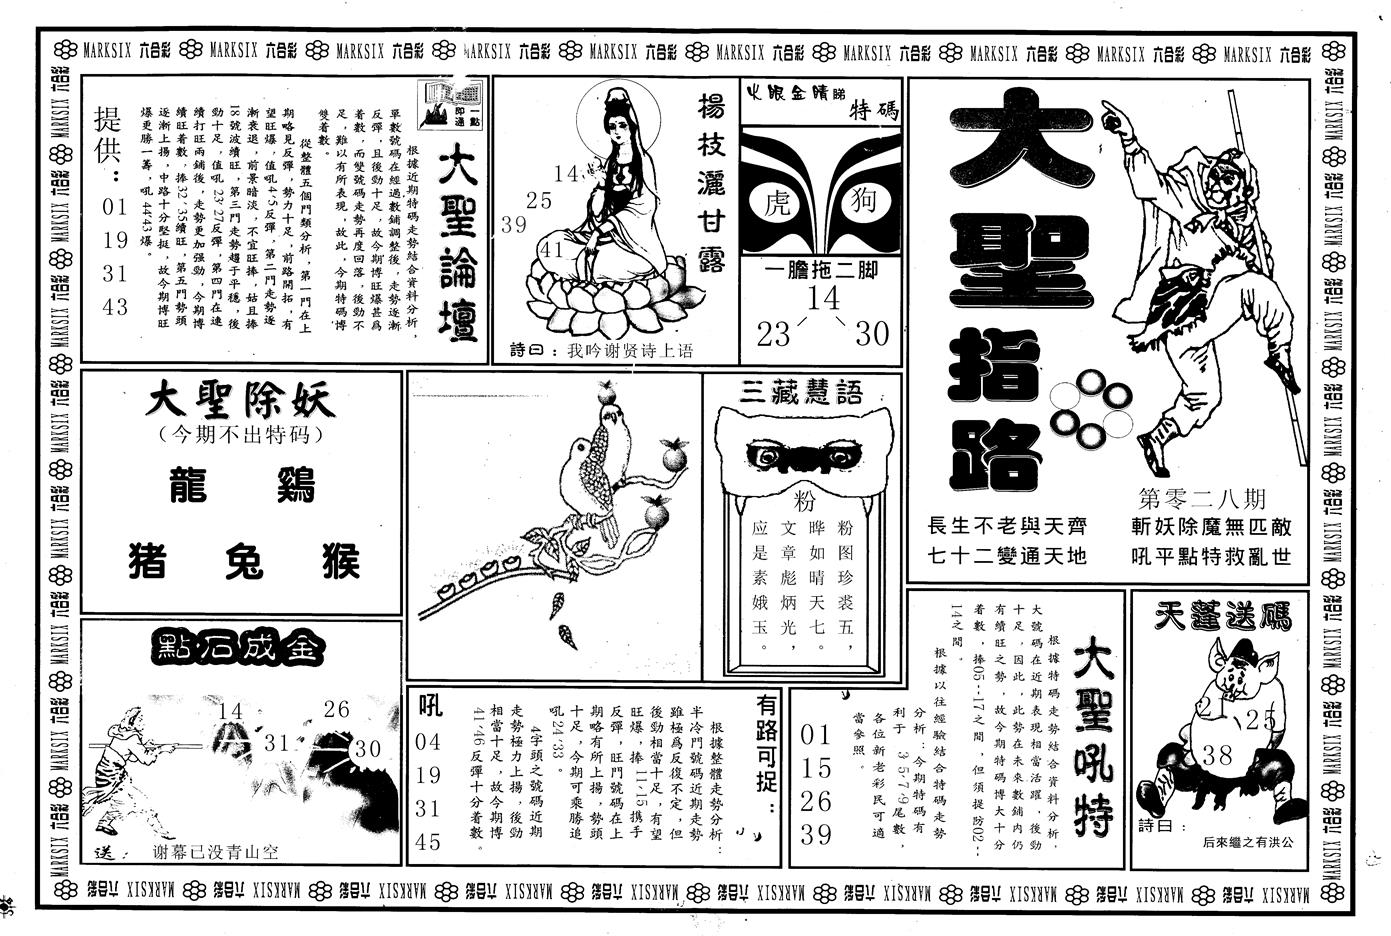 MARKSIX 六合彩 MARKSIX 六合彩 MARKSIX 六合彩 MARKSIX 六合彩 MARKSIX 六合彩 MARKSIX 六合彩 MARKSIX 六合彩 MARKSIX 六合彩 MARKSIX 六合彩 MARKSIX 六合彩
大聖指路
第零二八期
長生不老與天齊
七十二變通天地
斬妖除魔無匹敵
吼平點特救亂世
火眼金睛睇
特碼
虎
狗
一膽拖二脚
14
23
30
楊枝灑甘露
14
25
39
41
詩曰：我吟谢贤诗上语
一點即通
大聖論壇
根據近期特碼走勢結合資料分析，
單數號碼在經過數鋪調整後，走勢逐漸
反彈，且後勁十足，故今期博旺爆甚爲
着數，而雙號碼走勢再度回落，後勁不
足，難以有所表現，故此，今期特碼博
雙着數。
從整體五個門類分析，第一門在上
期略見反彈，勢力十足，前路開拓，有
望旺爆，值吼4·5反彈，第二門走勢逐
漸衰退，前景暗淡，不宜旺捧，姑且捧
18號波續旺，第三門走勢趨于平穩，後
勁十足，值吼23·27反彈，第四門在連
續打旺兩鋪後，走勢更加强勁，今期博
續旺着數，捧32·35續旺，第五門勢頭
逐漸上揚，中路十分堅挺，故今期博旺
爆更勝一籌，吼44·43爆。
提供：
01
19
31
43
大聖除妖
（今期不出特码）
龍 鷄
猪 兔 猴
三藏慧語
粉
粉图珍裘五，
晔如晴天七。
文章彪炳光，
应是素娥玉。
點石成金
14
26
31
30
送： 谢幕已没青山空
有路可捉：
根據整體走勢分析：
半冷門號碼近期走勢
雖極爲反復不定，但
後勁相當十足，有望
旺爆，捧11·15携手
反彈，旺門號碼在上
期略有所上揚，勢頭
十足，今期可乘勝追
吼24·33。
4字頭之號碼近期
走勢極力上揚，後勁
相當十足，故今期博
41·46反彈十分着數。
吼
04
19
31
45
大聖吼特
根據特碼走勢結合資料分析，
大號碼在近期表現相當活躍，後勁
十足，因此，此勢在未來數鋪内仍
有續旺之勢，故今期特碼博大十分
着數，捧05--17之間，但須提防02--
14之間。
根據以往經驗結合特碼走勢
分析：今期特碼有
利于3·5·7·9尾數，
各位新老彩民可適
當參照。
01
15
26
39
天蓬送碼
25
38
詩曰：
后來繼之有洪公